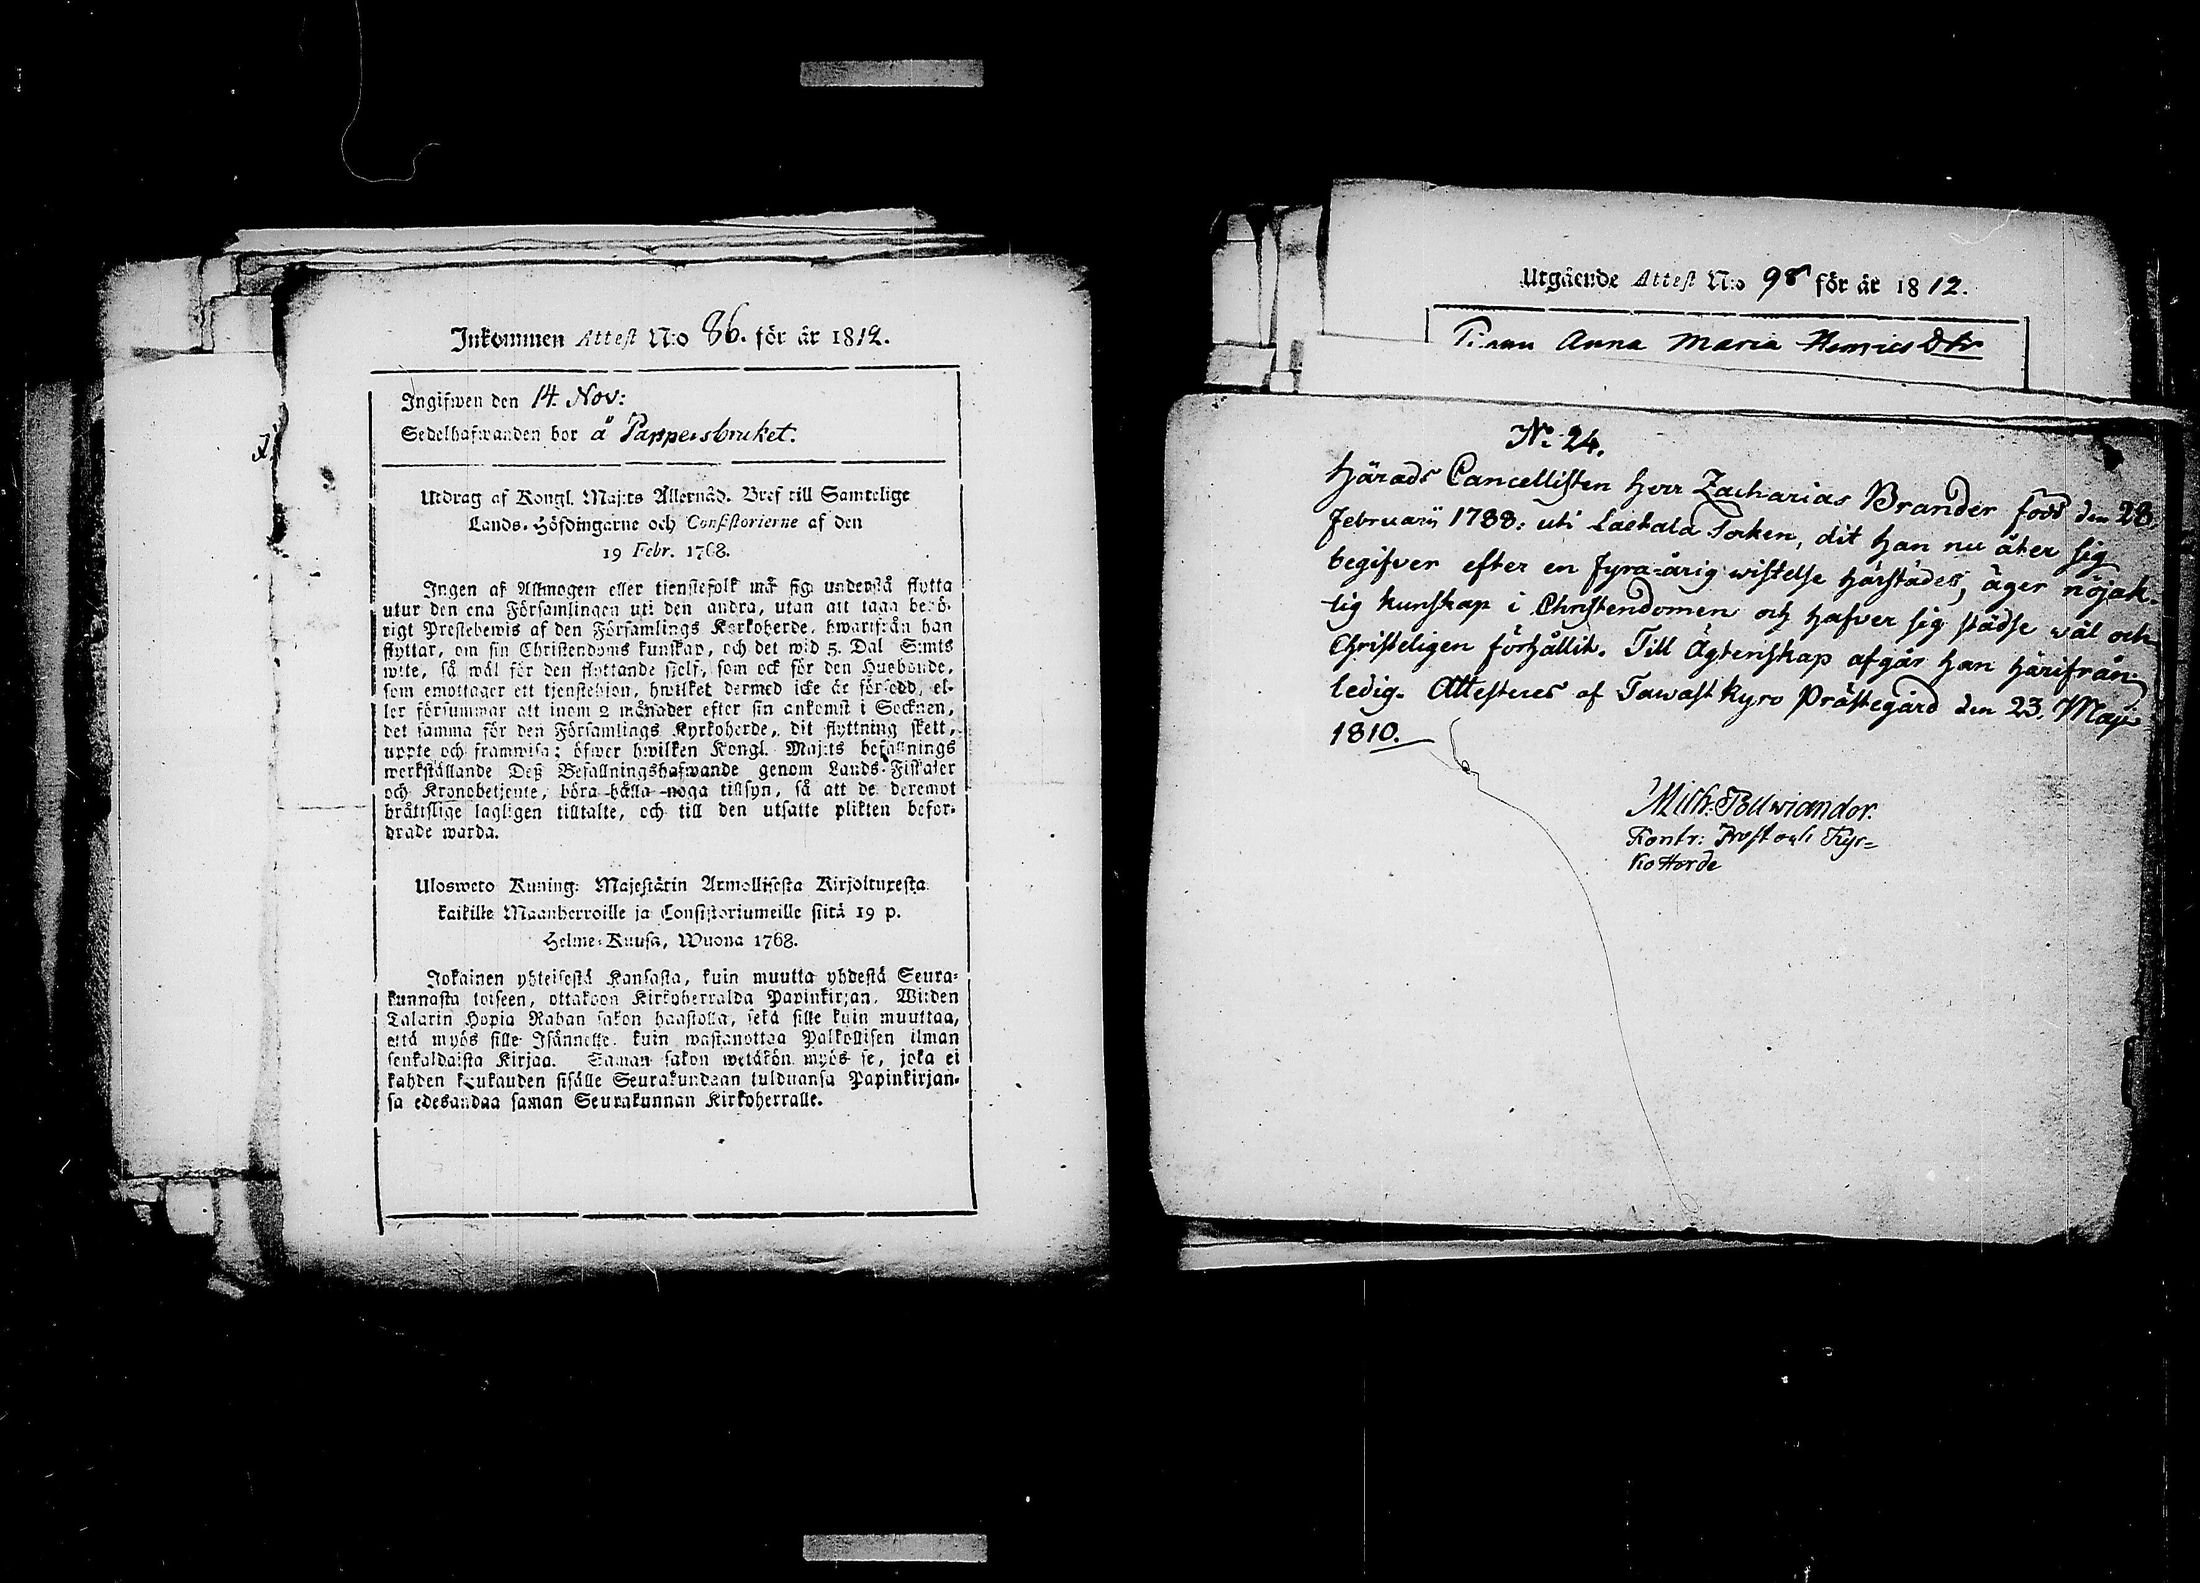 Inkommen Attest N:o 86. för år 1812.
Ingifwen den 14. Nov:
Sedelhafwanden bor å Pappersbruket.
Utdrag af Kongl. Maj:ts Allernåd. Bref till Samtelige
Lands-Höfdingarne och Consistorierne af den
19 Febr. 1768.
Ingen af Allmogen eller tienstefolk må sig understå flytta
utur den ena Församlingen uti den andra, utan att taga behö-
rigt Prestebewis af den Församlings Kyrkoherde, hwarifrån han
flyttar, om sin Christendoms kunskap, och det wid 5. Dal S:mts
wite, så wäl för den flyttande sjelf, som ock för den Husbonde,
som emottager ett tjenstehjon, hwilket dermed icke är försedd, el-
ler försummar att inom 2 månader efter sin ankomst i Socknen,
det samma för den Församlings Kyrkoherde, dit flyttning skett,
uppte och framwisa: öfwer hwilken Kongl. Maj:ts befallnings
werkställande Deß Befallningshafwande genom Lands-Fiskaler
och Kronobetjente, böra hålla noga tillsyn, så att de deremot
bråttslige lagligen tilltalte, och till den utsatte plikten befor-
drade warda.
Ulosweto Kuning: Majestätin Armollisesta Kirjoituxesta
kaikille Maanherroille ja Consistoriumeille siitä 19 p.
Helme-Kuusa, Wuona 1768.
Jokainen yhteisestä Kansasta, kuin muutta yhdestä Seura-
kunnasta toiseen, ottakoon Kirkoherralda Papinkirjan, Wiiden
Talarin Hopia Rahan sakon haastolla, sekä sille kuin muuttaa,
että myös sille Isännelle, kuin wastanottaa Palkollisen ilman
senkaldaista Kirjaa. Saman sakon wetäkön myös se, joka ei
kahden kuukauden sisälle Seurakundaan tulduansa Papinkirjan-
sa edesandaa saman Seurakunnan Kirkoherralle.
Utgående Attest N:o 98 för år 1812.
Anna Maria Henrics Dtr
N: 24.
Härads Cancellisten Herr Zacharias Brander född den 28
Februarii 1788: uti Laetala Socken, dit han nu åter sig
begifver efter en fyra-årig wistelse härstädes, äger nöjak-
lig kunskap i Christendomen och hafver sig städse wäl och
Christeligen förhållit. Till Ägtenskap afgår han härifrån
ledig. Attesteres af Tawast Kyro Prästegård den 23. Maji
1810.
Mich: Pollviander.
Kontr: Prost och Kyr=
ko Herde